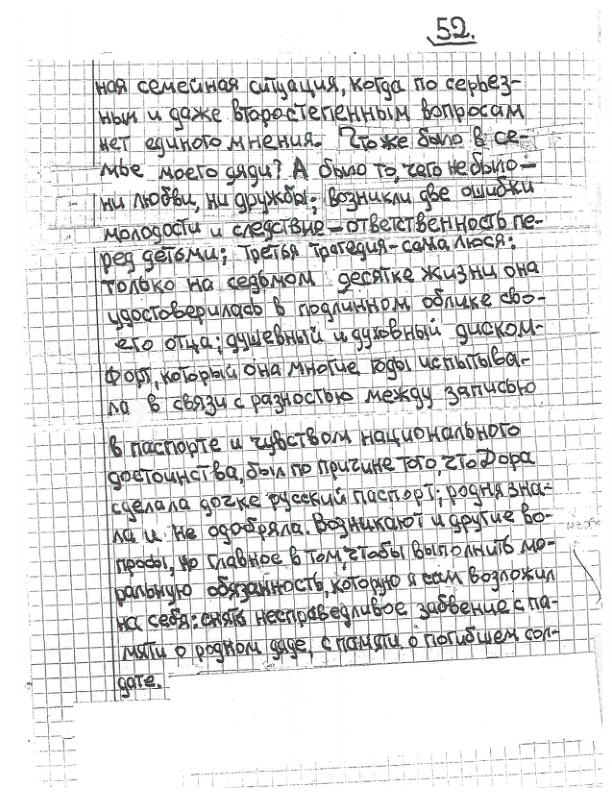 52.
ная семейная ситуация, когда по серьез-
ным и даже второстепенным вопросам
нет единого мнения. Что же было в се-
мье моего дяди? А было то, чего не было –
ни любви, ни дружбы; возникли две ошибки
молодости и следствие – ответственность пе-
ред детьми; третья трагедия – сама Люся:
только на седьмом десятке жизни она
удостоверилась в подлинном облике сво-
его отца; душевный и духовный диском-
форт, который она многие годы испытыва-
ла в связи с разностью между записью
в паспорте и чувством национального
достоинства, был по причине того, что Дора
сделала дочке русский паспорт; родня зна-
ла и не одобряла. Возникают и другие во-
просы, но главное в том, чтобы выполнить мо-
ральную обязанность, которую я сам возложил
на себя: снять несправедливое забвение с па-
мяти о родном дяде, с памяти о погибшем сол-
дате.